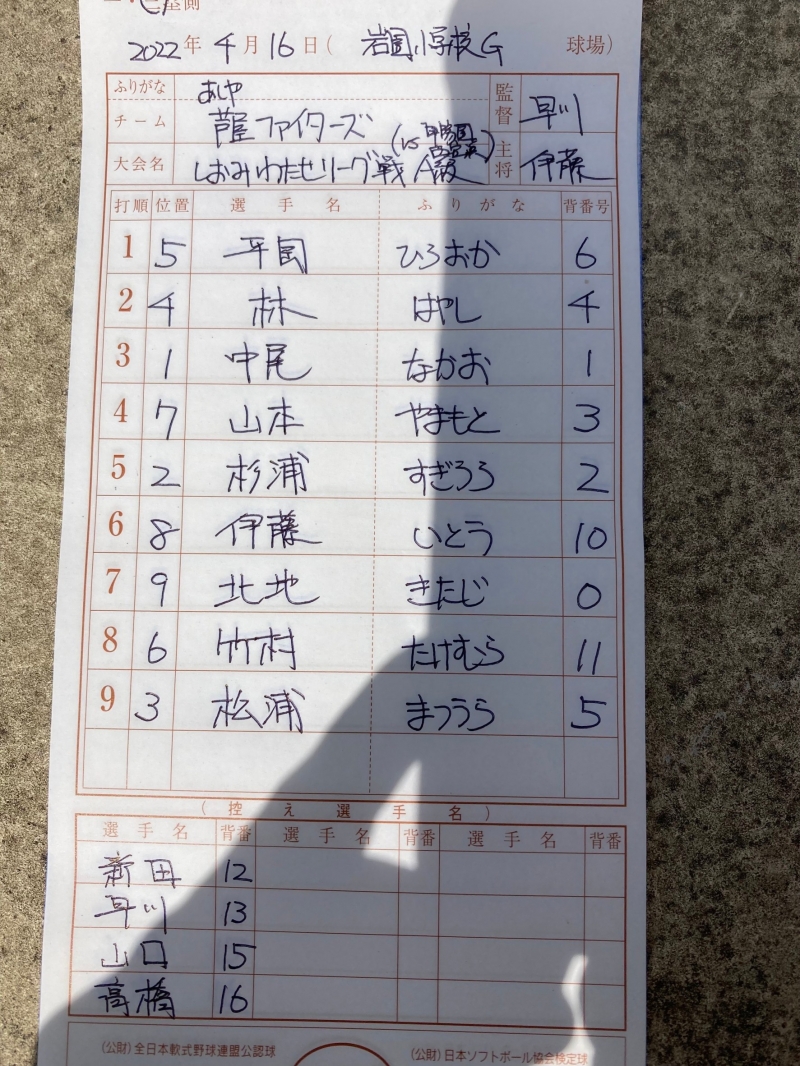 塁側
2022年4月16日(岩園小学校G 球場)
ふりがな あしや
チーム 芦屋ファイターズ 監督 早川
大会名 しおみわたせリーグ戦 主将 伊藤
打順 位置 選手名 ふりがな 背番号
1 5 平岡 ひらおか 6
2 4 林 はやし 4
3 1 中尾 なかお 1
4 7 山本 やまもと 3
5 2 杉浦 すぎうら 2
6 8 伊藤 いとう 10
7 9 北地 きたじ 0
8 6 竹村 たけむら 11
9 3 松浦 まつうら 5
(控え選手名)
選手名 背番 選手名 背番 選手名 背番
新田 12
早川 13
山口 15
高橋 16
(公財)全日本軟式野球連盟公認球 (公財)日本ソフトボール協会検定球